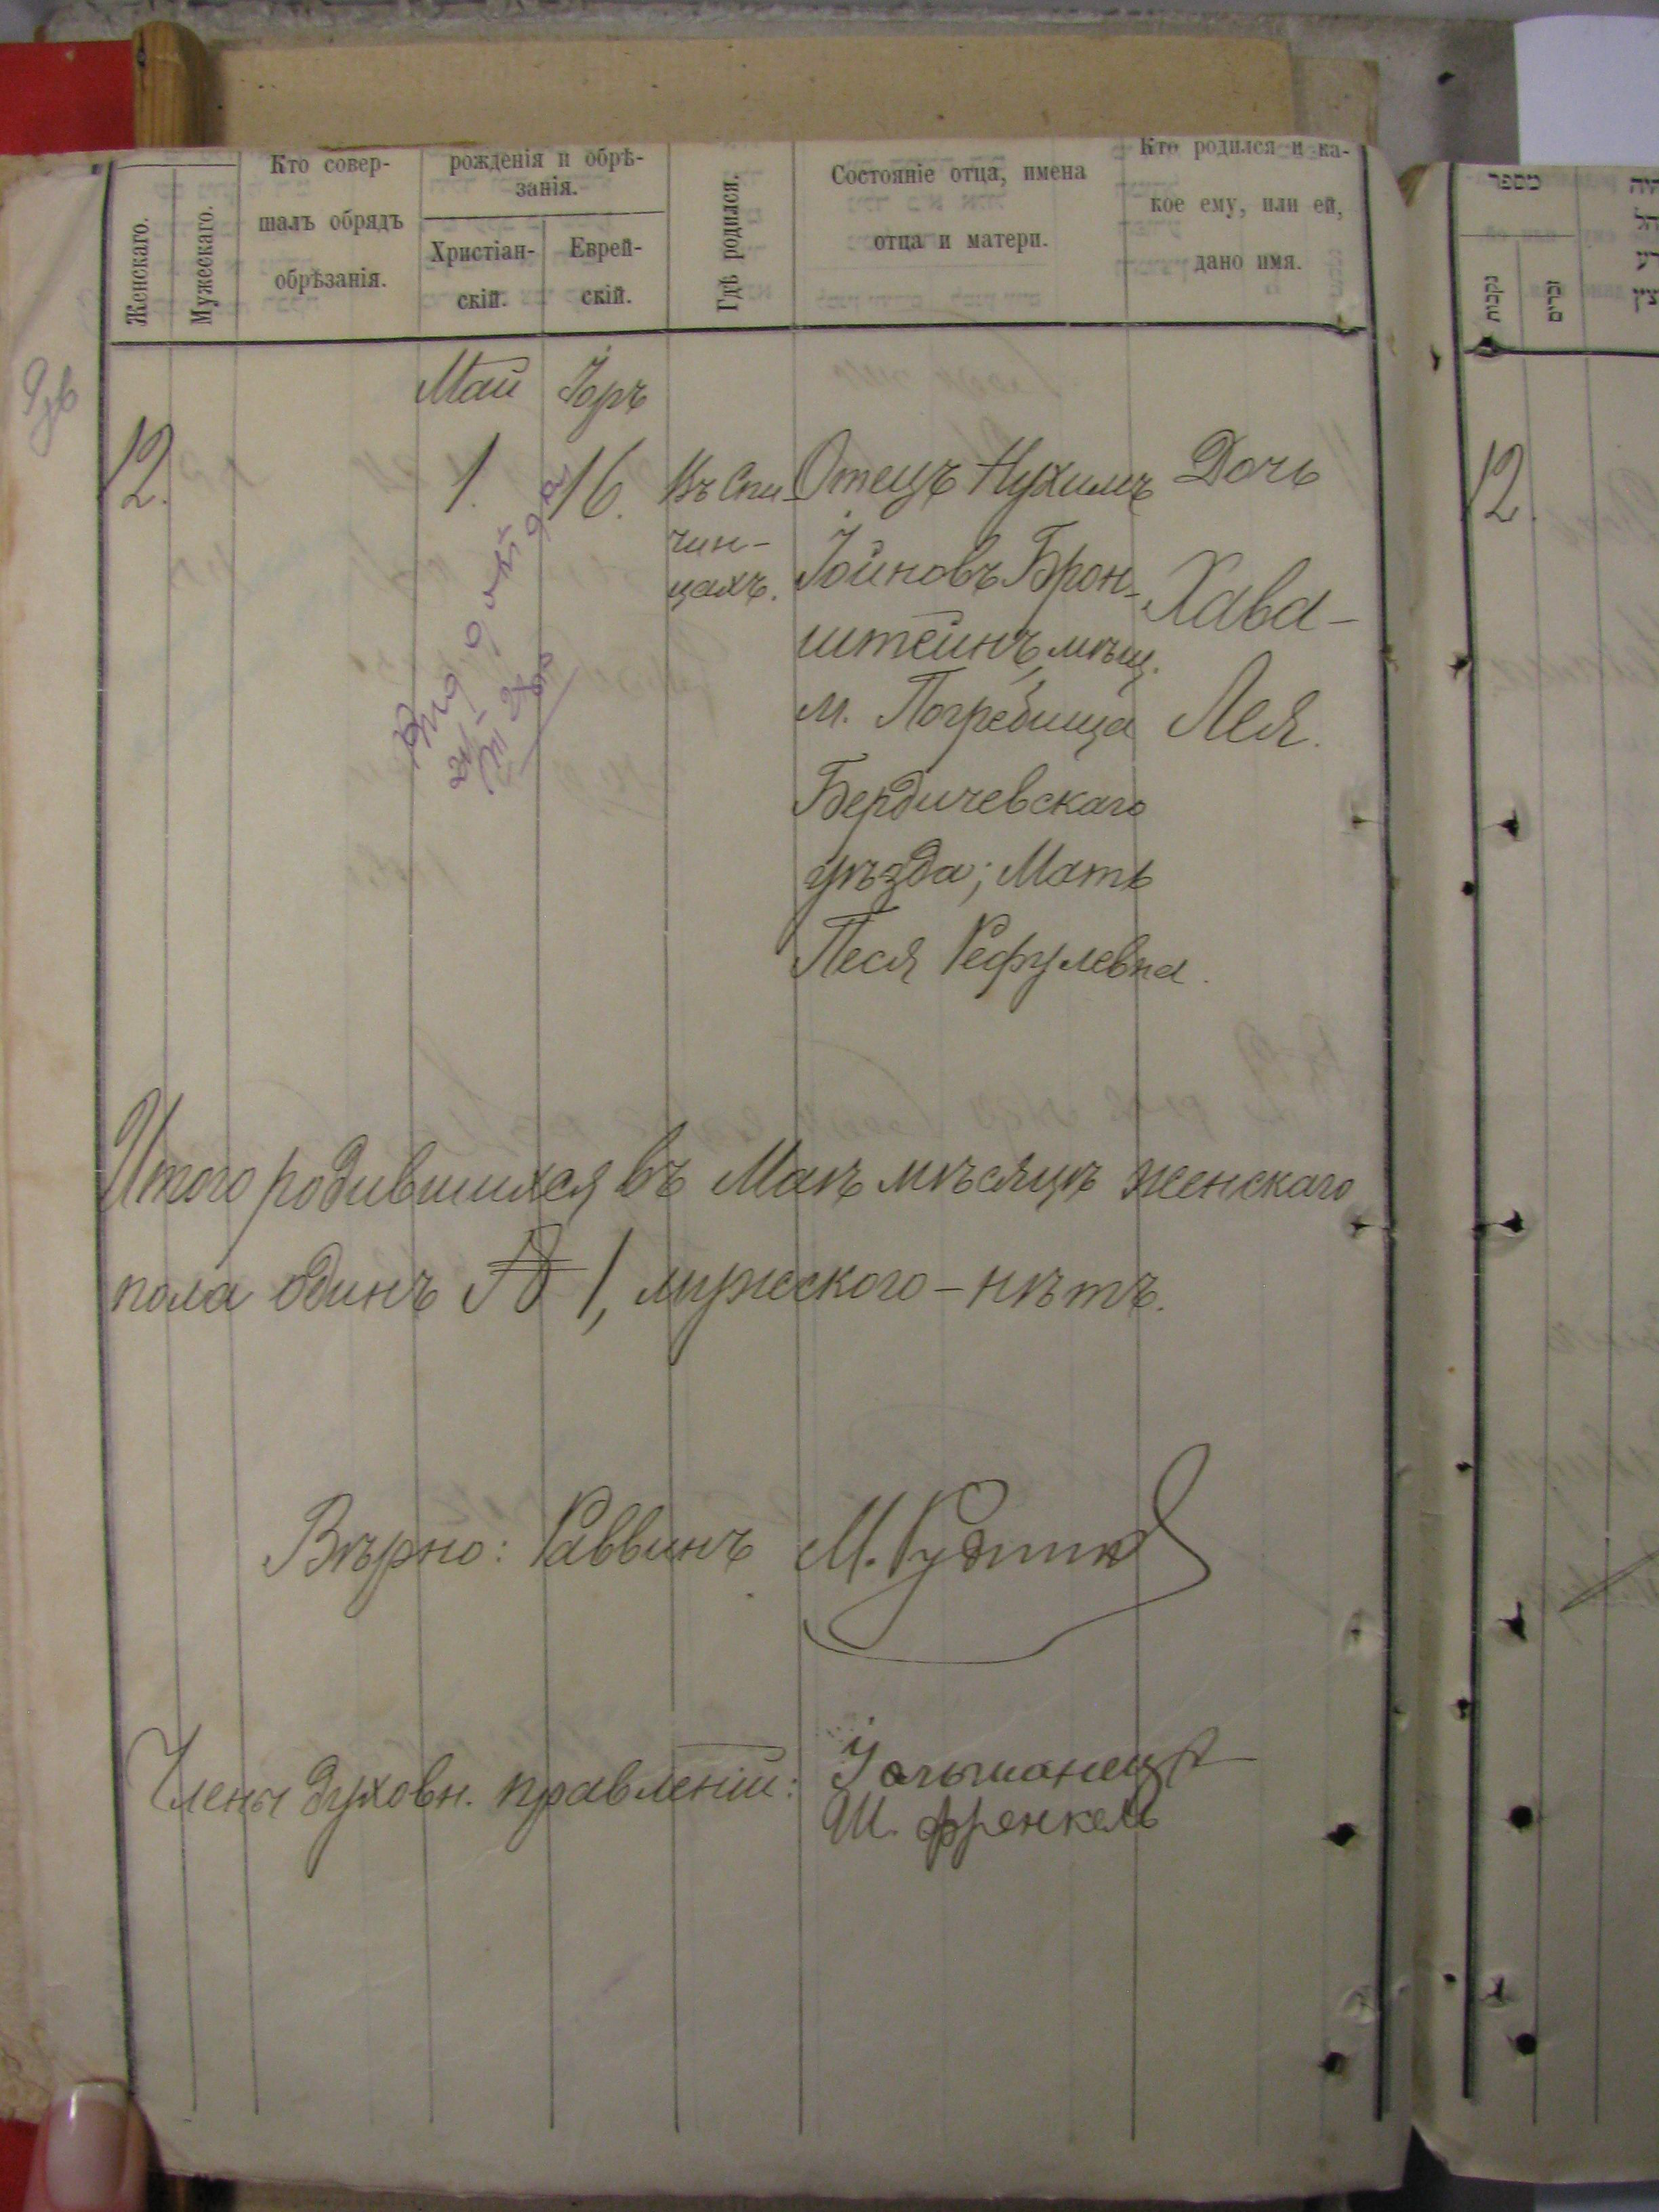 Женскаго.
Мужескаго.
Кто совер-
шалъ обрядъ
обрѣзанія.
рожденія и обрѣ-
занія.
Христіан-
скій.
Еврей-
скій.
Гдѣ родился.
Состояніе отца, имена
отца и матери.
Кто родился и ка-
кое ему, или ей,
дано имя.
מספר
נקבות
זכרים
Май Іоръ
12. 1. 16. Въ Спи-
чин-
цахъ.
Отецъ Нухимъ
Іойновъ Брон-
штейнъ, мѣщ.
м. Погребища
Бердичевскаго
уѣзда; Мать
Песя Рефулевна.
Дочь
Хава-
Лея.
12.
Итого родившихся въ Маѣ мѣсяцѣ женскаго
пола одинъ 1, мужескаго - нѣтъ.
Вѣрно: Раввинъ М.
Члены духовн. правленій:
Ш. Френкель